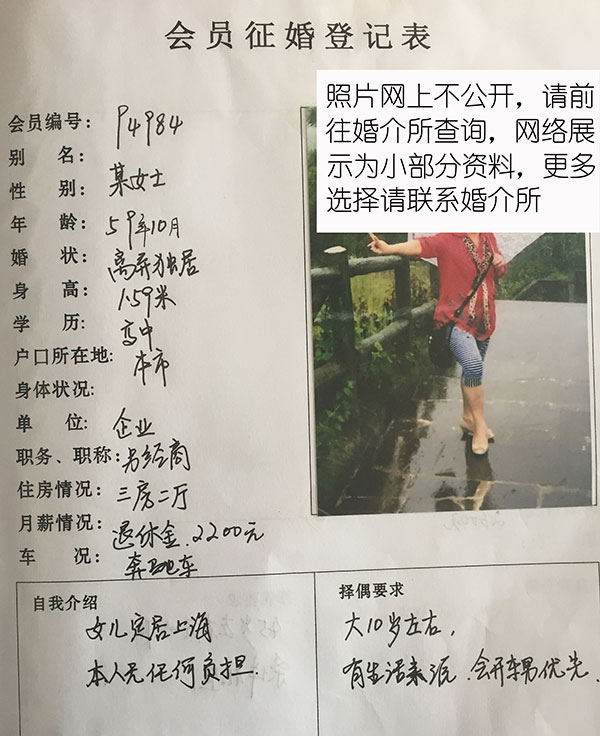 会员征婚登记表
照片网上不公开，请前
往婚介所查询，网络展
示为小部分资料，更多
选择请联系婚介所
会员编号：94984
别 名：
性 别：某女士
年 龄：59年10月
婚 状：离异独居
身 高：1.59米
学 历：高中
户口所在地：本市
身体状况：
单 位：企业
职务、职称：另经商
住房情况：三房二厅
月薪情况：退休金.2200元
车 况：奔驰车
自我介绍
女儿定居上海
本人无任何负担.
择偶要求
大10岁左右，
有生活来源.会开车男优先.